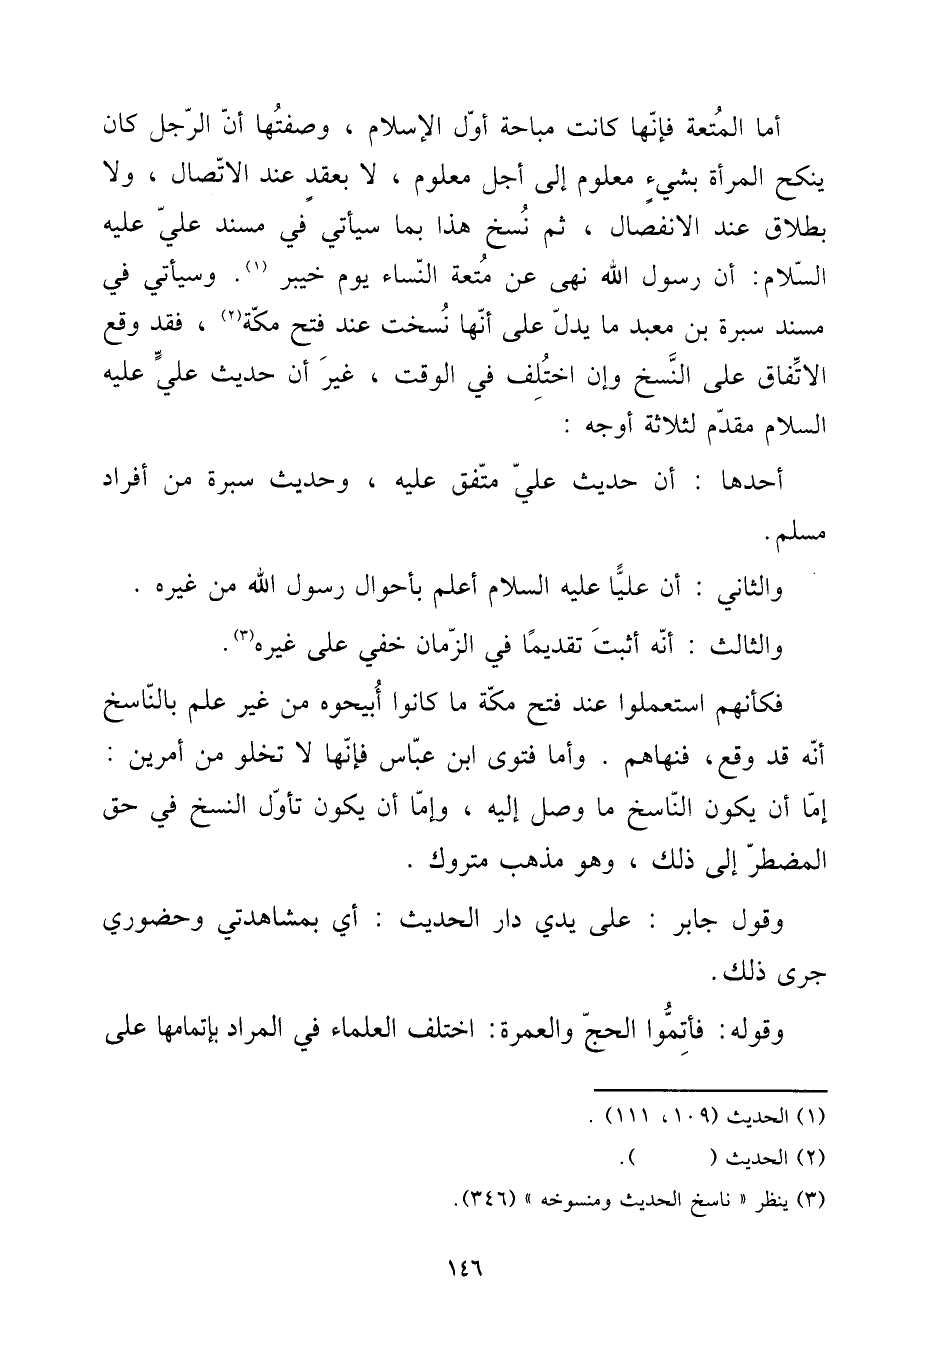 أما المُتعة فإنّها كانت مباحة أوّل الإسلام ، وصفتُها أنّ الرّجل كان
ينكح المرأة بشيءٍ معلوم إلى أجل معلوم ، لا بعقدٍ عند الاتّصال ، ولا
بطلاق عند الانفصال ، ثم نُسخ هذا بما سيأتي في مسند عليّ عليه
السّلام: أن رسول الله نهى عن مُتعة النّساء يوم خيبر (١). وسيأتي في
مسند سبرة بن معبد ما يدلّ على أنّها نُسخت عند فتح مكّة(٢) ، فقد وقع
الاتِّفاق على النَّسخ وإن اختُلِف في الوقت ، غيرَ أن حديث عليٍّ عليه
السلام مقدّم لثلاثة أوجه :
أحدها : أن حديث عليّ متّفق عليه ، وحديث سبرة من أفراد
مسلم .
والثاني : أن عليًّا عليه السلام أعلم بأحوال رسول الله من غيره .
والثالث : أنّه أثبتَ تقديمًا في الزّمان خفي على غيره(٣).
فكأنهم استعملوا عند فتح مكّة ما كانوا أُبيحوه من غير علم بالنّاسخ
أنّه قد وقع، فنهاهم . وأما فتوى ابن عبّاس فإنّها لا تخلو من أمرين :
إمّا أن يكون النّاسخ ما وصل إليه ، وإمّا أن يكون تأوّل النسخ في حق
المضطرّ إلى ذلك ، وهو مذهب متروك .
وقول جابر : على يدي دار الحديث : أي بمشاهدتي وحضوري
جرى ذلك .
وقوله: فأتِمُّوا الحجّ والعمرة: اختلف العلماء في المراد بإتمامها على
(١) الحديث (١٠٩، ١١١) .
(٢) الحديث (      ).
(٣) ينظر « ناسخ الحديث ومنسوخه » (٣٤٦).
١٤٦